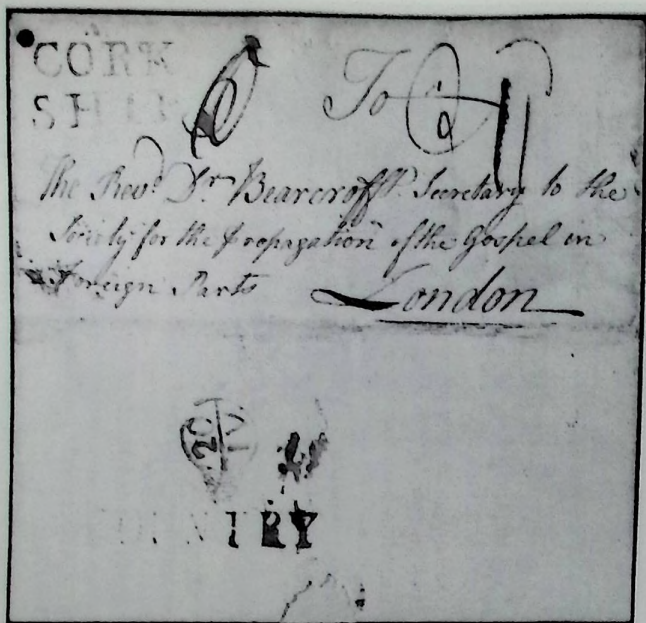 CORK
SHIP
To
The Revd. Dr. Bearcroft Secretary to the
Society for the Propagation of the Gospel in
Foreign Parts London